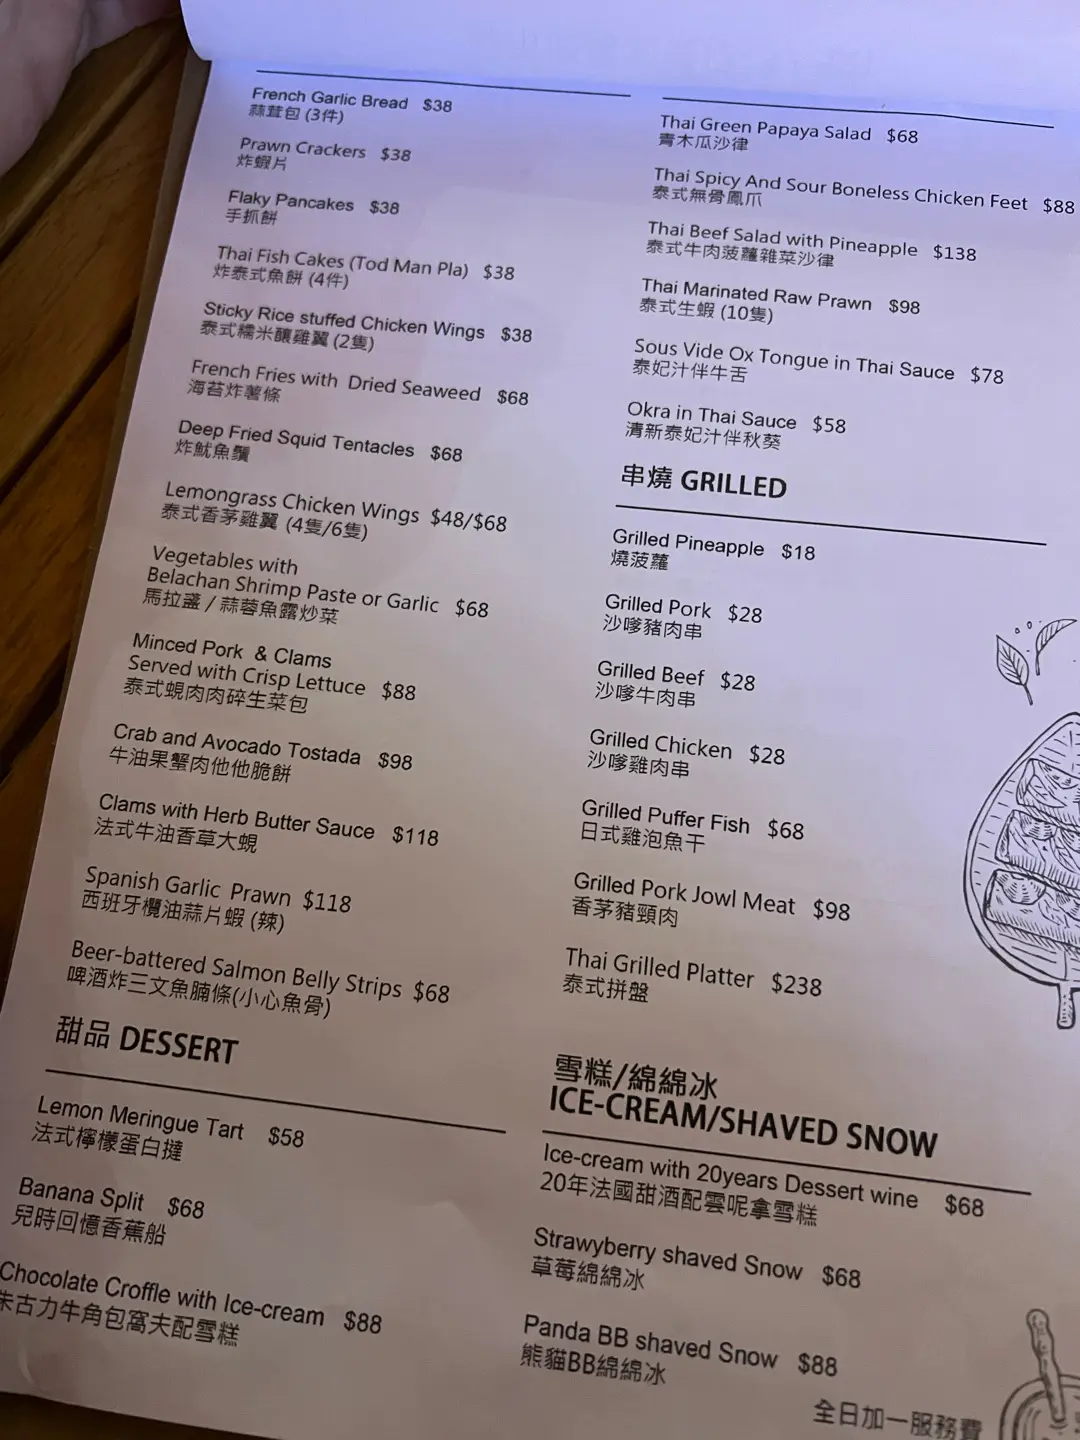 French Garlic Bread $38
蒜茸包 (3件)
Prawn Crackers $38
炸蝦片
Flaky Pancakes $38
手抓餅
Thai Fish Cakes (Tod Man Pla) $38
炸泰式魚餅 (4件)
Sticky Rice stuffed Chicken Wings $38
泰式糯米釀雞翼 (2隻)
French Fries with Dried Seaweed $68
海苔炸薯條
Deep Fried Squid Tentacles $68
炸魷魚鬚
Lemongrass Chicken Wings $48/$68
泰式香茅雞翼 (4隻/6隻)
Vegetables with
Belachan Shrimp Paste or Garlic $68
馬拉盞 / 蒜蓉魚露炒菜
Minced Pork & Clams
Served with Crisp Lettuce $88
泰式蜆肉肉碎生菜包
Crab and Avocado Tostada $98
牛油果蟹肉他他脆餅
Clams with Herb Butter Sauce $118
法式牛油香草大蜆
Spanish Garlic Prawn $118
西班牙欖油蒜片蝦 (辣)
Beer-battered Salmon Belly Strips $68
啤酒炸三文魚腩條(小心魚骨)
甜品 DESSERT
Lemon Meringue Tart $58
法式檸檬蛋白撻
Banana Split $68
兒時回憶香蕉船
Chocolate Croffle with Ice-cream $88
朱古力牛角包窩夫配雪糕
Thai Green Papaya Salad $68
青木瓜沙律
Thai Spicy And Sour Boneless Chicken Feet $88
泰式無骨鳳爪
Thai Beef Salad with Pineapple $138
泰式牛肉菠蘿雜菜沙律
Thai Marinated Raw Prawn $98
泰式生蝦 (10隻)
Sous Vide Ox Tongue in Thai Sauce $78
泰妃汁伴牛舌
Okra in Thai Sauce $58
清新泰妃汁伴秋葵
串燒 GRILLED
Grilled Pineapple $18
燒菠蘿
Grilled Pork $28
沙嗲豬肉串
Grilled Beef $28
沙嗲牛肉串
Grilled Chicken $28
沙嗲雞肉串
Grilled Puffer Fish $68
日式雞泡魚干
Grilled Pork Jowl Meat $98
香茅豬頸肉
Thai Grilled Platter $238
泰式拼盤
雪糕/綿綿冰
ICE-CREAM/SHAVED SNOW
Ice-cream with 20years Dessert wine $68
20年法國甜酒配雲呢拿雪糕
Strawyberry shaved Snow $68
草莓綿綿冰
Panda BB shaved Snow $88
熊貓BB綿綿冰
全日加一服務費